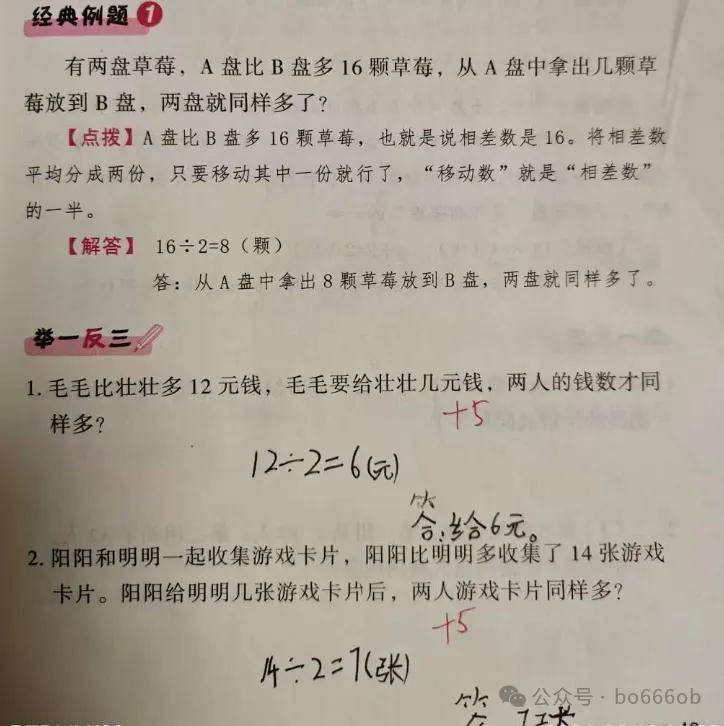 经典例题 1
有两盘草莓，A 盘比 B 盘多 16 颗草莓，从 A 盘中拿出几颗草
莓放到 B 盘，两盘就同样多了？
【点拨】A 盘比 B 盘多 16 颗草莓，也就是说相差数是 16。将相差数
平均分成两份，只要移动其中一份就行了，“移动数”就是“相差数”
的一半。
【解答】 16÷2=8（颗）
答：从 A 盘中拿出 8 颗草莓放到 B 盘，两盘就同样多了。
举一反三
1. 毛毛比壮壮多 12 元钱，毛毛要给壮壮几元钱，两人的钱数才同
样多？
+5
12÷2=6(元)
答:给6元。
2. 阳阳和明明一起收集游戏卡片，阳阳比明明多收集了 14 张游戏
卡片。阳阳给明明几张游戏卡片后，两人游戏卡片同样多？
+5
14÷2=7(张)
公众号 · bo666ob
答